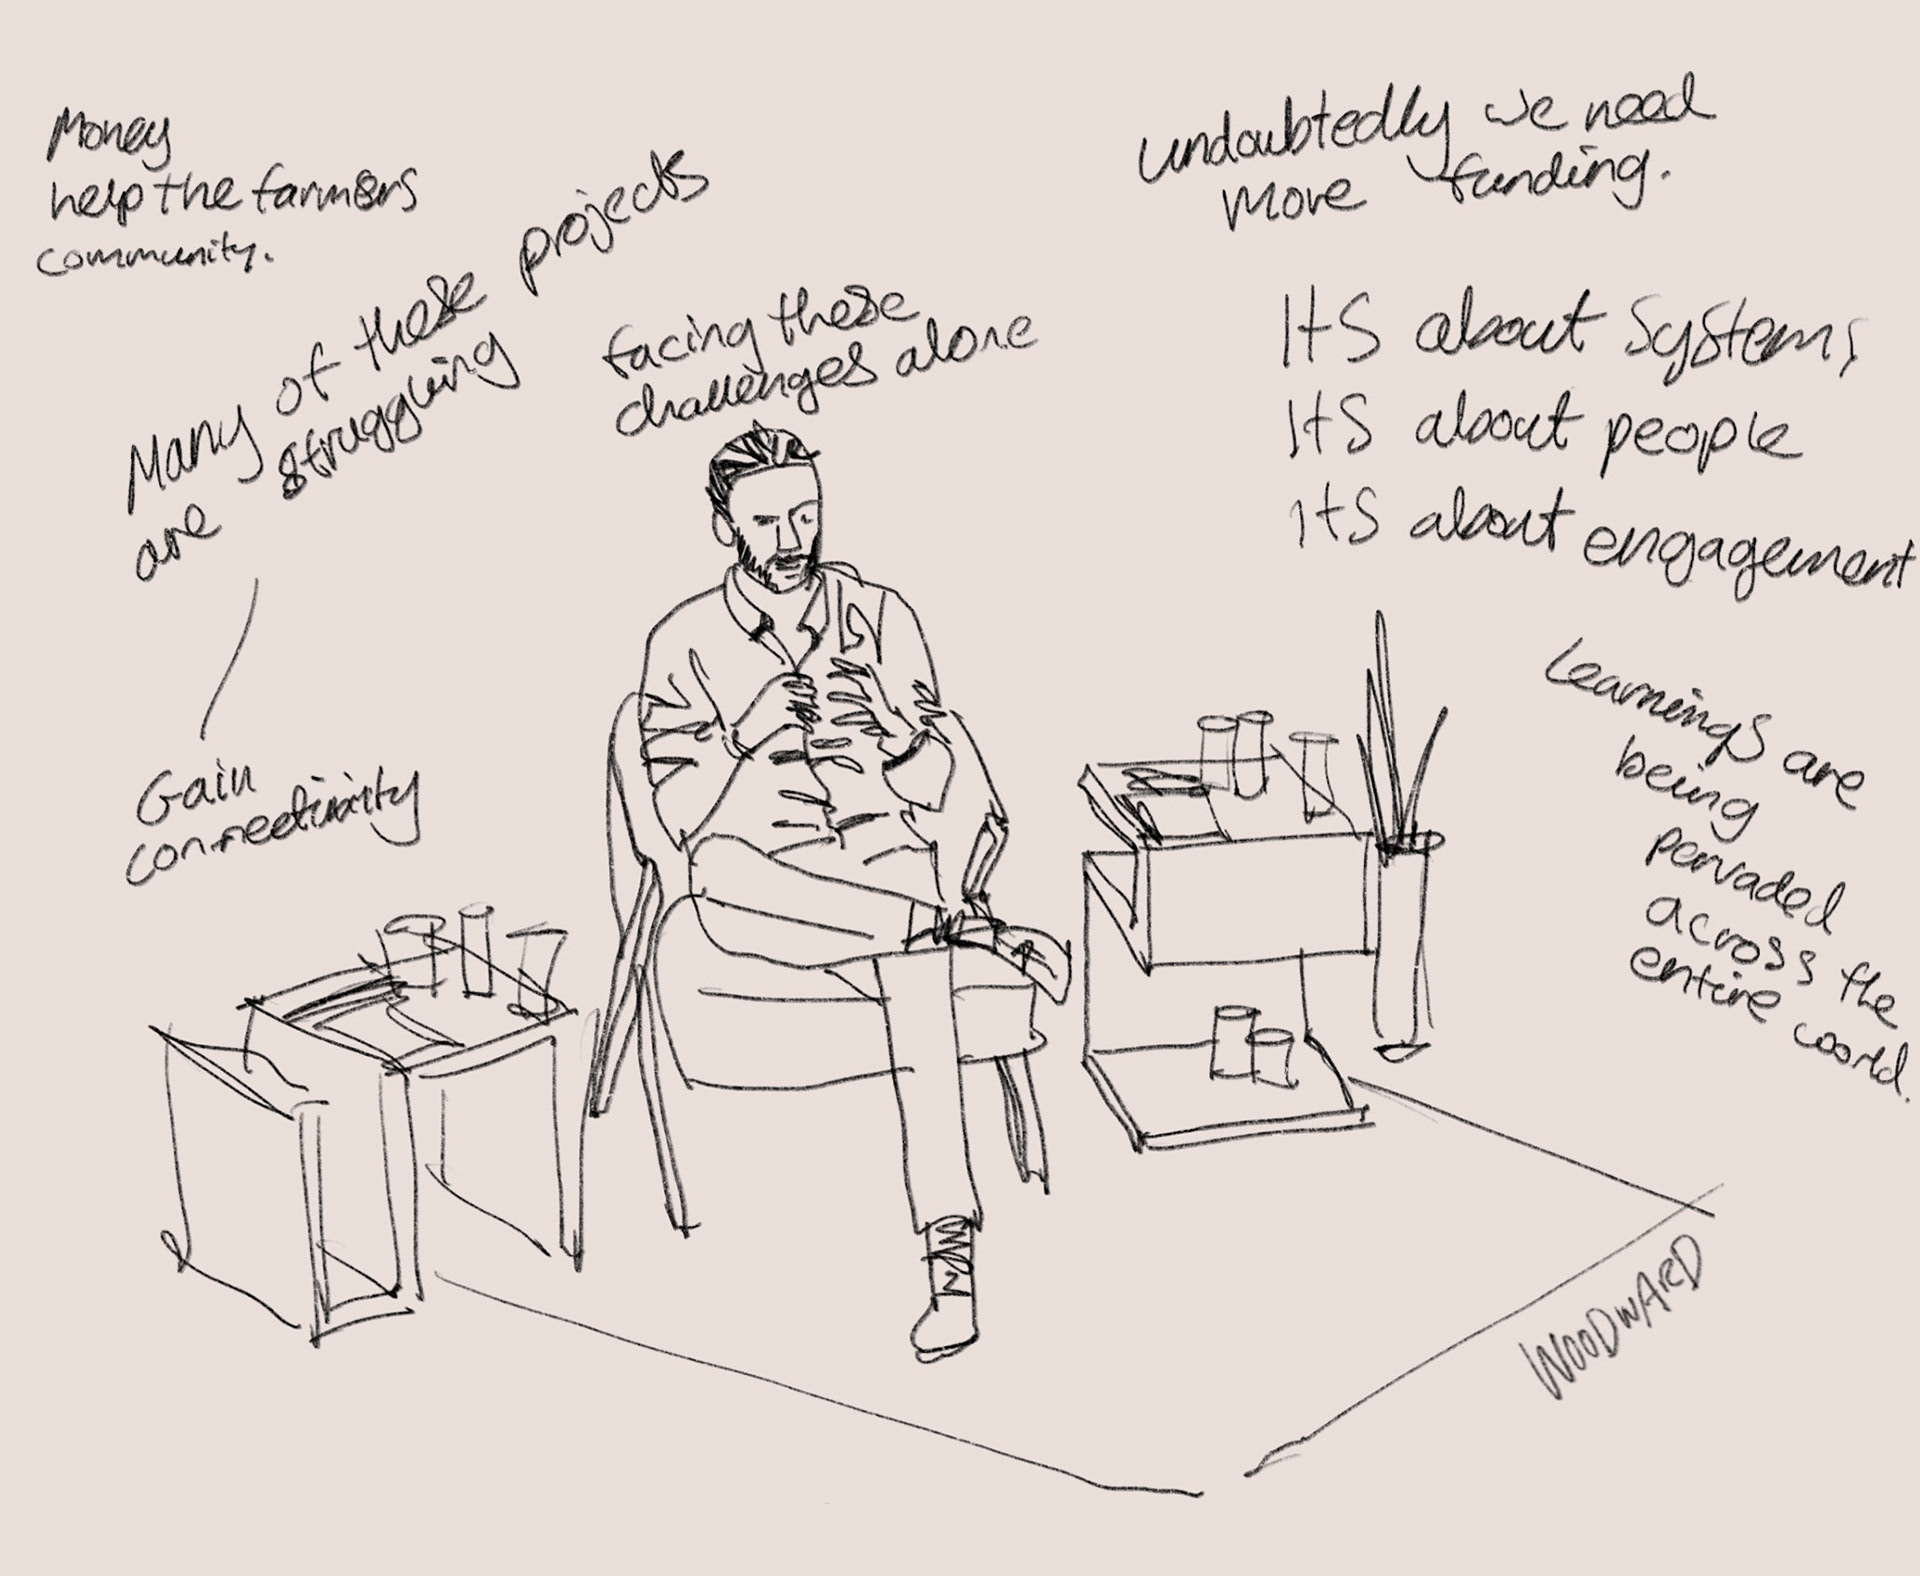 Money
help the farmers
community.
Many of these projects
are struggling
facing these
challenges alone
Gain
connectivity
undoubtedly we need
more funding.
Its about systems
Its about people
Its about engagement
Learnings are
being
pervaded
across the
entire world.
WOODWARD